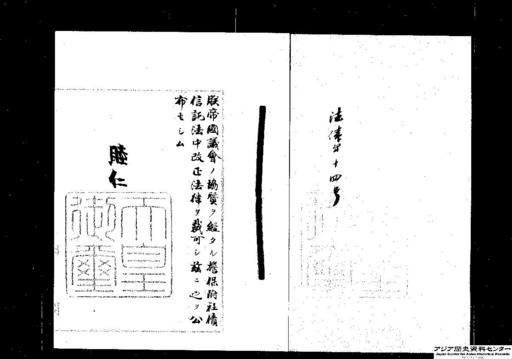 法律第十四号
朕帝國議會ノ協賛ヲ經タル擔保附社債
信託法中改正法律ヲ裁可シ茲ニ之ヲ公
布セシム
睦仁
天皇
御璽
アジア歴史資料センター
Japan Center for Asian Historical Records